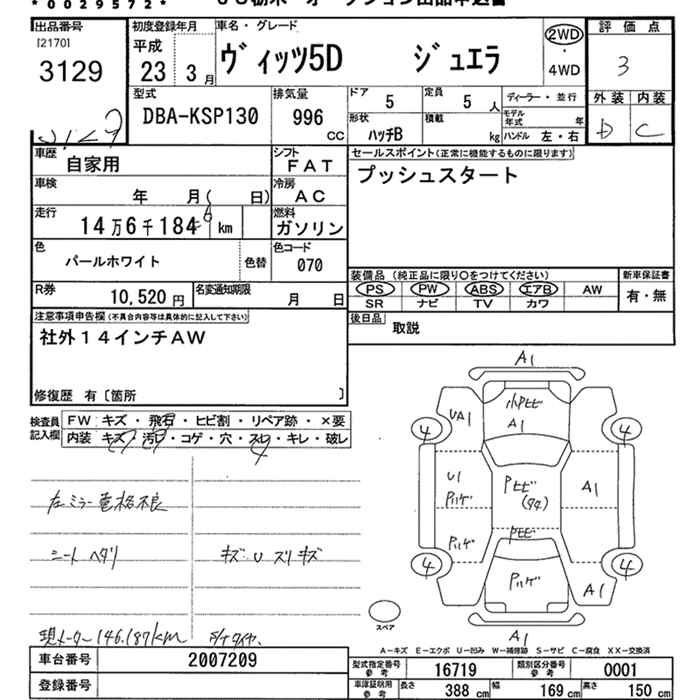 *0029572*
出品番号 初度登録年月 車名・グレード 評価点
[2170] 平成 ヴィッツ5D ジュエラ 2WD・4WD 3
3129 23年 3月
型式 DBA-KSP130 排気量 996 cc ドア 5 定員 5 人 ディーラー・並行 外装 内装
形状 ハッチB 積載 kg モデル年式 年 ハンドル 左・右 D C
3129
車歴 自家用 シフト FAT セールスポイント(正常に機能するものに限ります)
車検 年 月( 日) 冷房 AC プッシュスタート
走行 14万6千184 km 燃料 ガソリン
色 パールホワイト 色替 色コード 070
装備品 (純正品に限り○をつけてください) 新車保証書
R券 10,520 円 名変通知期限 月 日 PS PW ABS エアB AW 有・無
SR ナビ TV カワ
注意事項申告欄(不具合内容等は具体的に記入して下さい) 後日品 取説
社外14インチAW
修復歴 有〔箇所 〕
検査員記入欄 FW キズ・飛石・ヒビ割・リペア跡・×要
内装 キズ・汚レ・コゲ・穴・スレ・キレ・破レ
A1
小Pヒビ
UA1 A1
4 4
U1 Pヒビ A1
Pハゲ
Pハゲ Pヒビ
4 Pハゲ 4
A1
A1
左ミラー電格不良
シートヘタリ キズ U スリキズ
スペア
現メーター146.187km
A-キズ E-エクボ U-凹み W-補修跡 S-サビ C-腐食 XX-交換済
車台番号 2007209 型式指定番号参考 16719 類別区分番号参考 0001
登録番号 車庫証明用参考 長さ 388 cm 幅 169 cm 高さ 150 cm